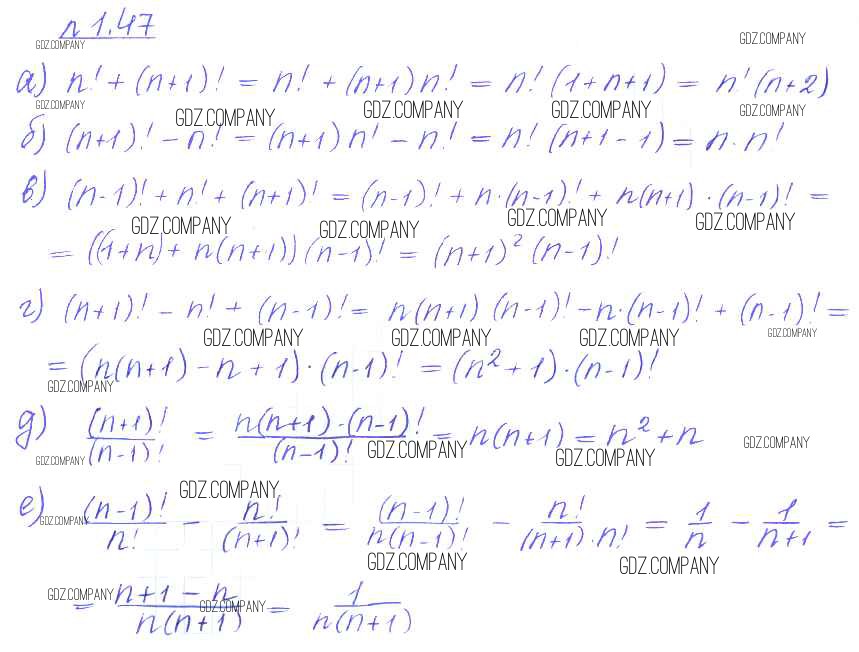 n 1.47
GDZ.COMPANY GDZ.COMPANY
а) n! + (n+1)! = n! + (n+1) n! = n! (1+n+1) = n! (n+2)
GDZ.COMPANY GDZ.COMPANY GDZ.COMPANY GDZ.COMPANY GDZ.COMPANY
б) (n+1)! - n! = (n+1) n! - n! = n! (n+1-1) = n · n!
в) (n-1)! + n! + (n+1)! = (n-1)! + n·(n-1)! + n(n+1) · (n-1)! =
GDZ.COMPANY GDZ.COMPANY GDZ.COMPANY GDZ.COMPANY
= ((1+n) + n(n+1)) (n-1)! = (n+1)² (n-1)!
г) (n+1)! - n! + (n-1)! = n(n+1) (n-1)! - n·(n-1)! + (n-1)! =
GDZ.COMPANY GDZ.COMPANY GDZ.COMPANY GDZ.COMPANY
= (n(n+1) - n + 1) · (n-1)! = (n² + 1) · (n-1)!
GDZ.COMPANY
д) (n+1)!/(n-1)! = n(n+1)·(n-1)!/(n-1)! = n(n+1) = n² + n
GDZ.COMPANY GDZ.COMPANY GDZ.COMPANY GDZ.COMPANY
GDZ.COMPANY
е) (n-1)!/n! - n!/(n+1)! = (n-1)!/n(n-1)! - n!/(n+1)·n! = 1/n - 1/n+1 =
GDZ.COMPANY GDZ.COMPANY GDZ.COMPANY
= n+1-n/n(n+1) = 1/n(n+1)
GDZ.COMPANY GDZ.COMPANY